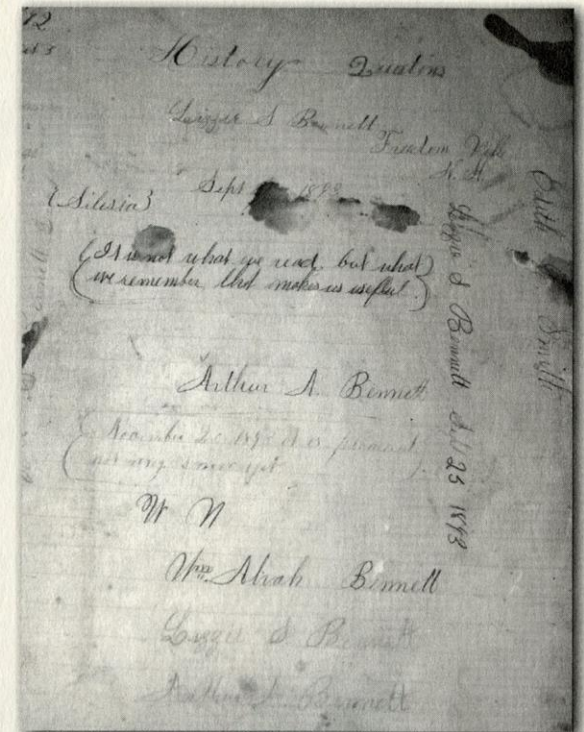 12
History
Lizzie S Bennett
Freedom
N.H.
Sept 1893
(Silesia)
(It is not what we read, but what
we remember that makes us useful.)
Arthur A. Bennett
November
not any snow yet
W N
Wm Alvah Bennett
Lizzie S Bennett
Bennett
Lizzie S Bennett Sept 25 1893
Edith